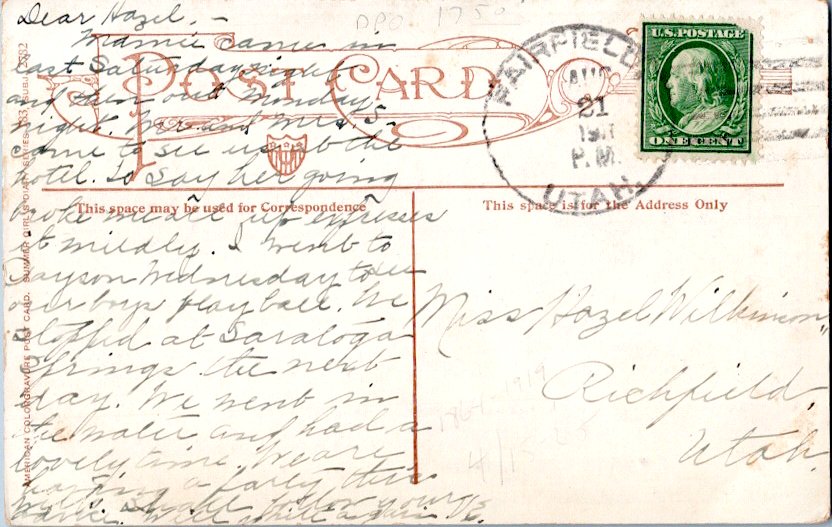 Dear Hazel, –
Mamie came in
last Saturday night
and then out Monday
night. Mr and Mrs. S-
came to see us at the
hotel. To say her going
broke me all up expresses
it mildly. I went to
Payson Wednesday to see
our boys play ball. We
stopped at Saratoga
Springs the next
day. We went in
the water and had a
lovely time. We are
having a party this
DPO 1750
POST CARD
This space may be used for Correspondence
This space is for the Address Only
AMERICAN COLORGRAVURE POST CARD. SUMMER GIRLS
SERIES 133, SUBJ. 2832
FAIRFIELD
AUG
21
P.M.
UTAH.
U.S. POSTAGE
ONE CENT
Miss Hazel Wilkinson,
Richfield,
Utah.
1861-1919
4/15-25